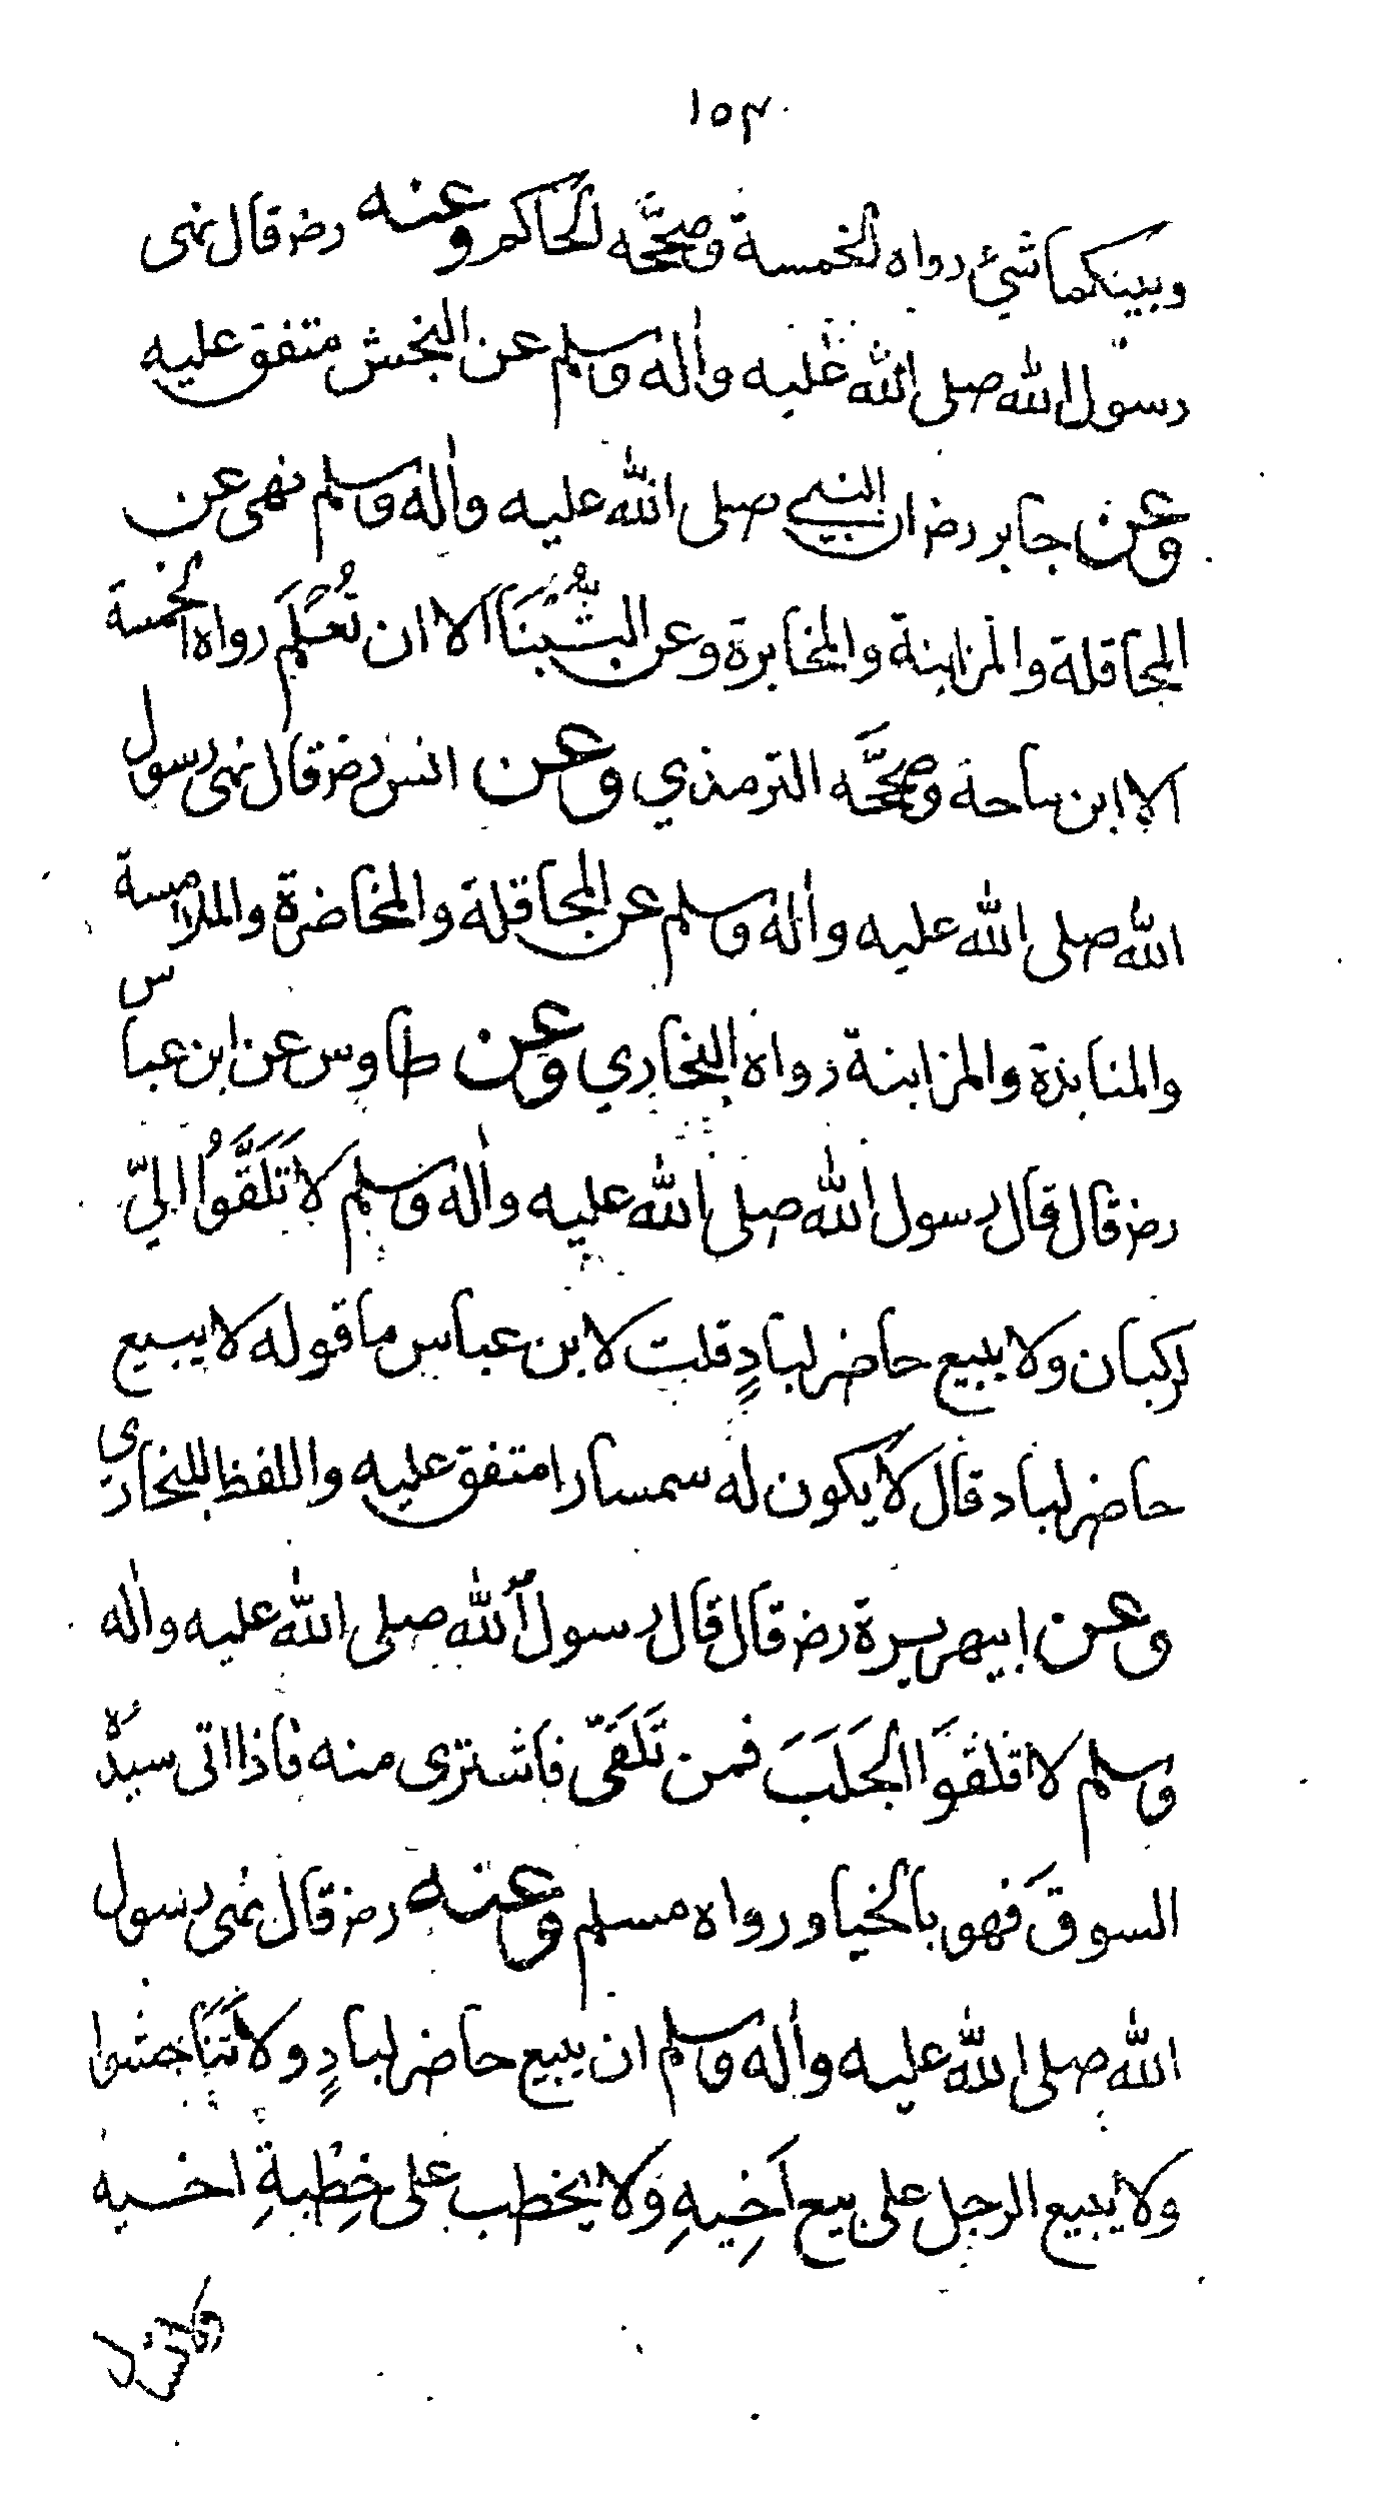 ١٥٣
وبينكما شئ رواه الخمسة وصحَّحه الحاكم وعنه رضـ قال نهى
رسول الله صلى الله عليه واٰله وسلم عن النجش متفق عليه
وعن جابر رضـ ان النبي صلى الله عليه واٰله وسلم نهى عن
المحاقلة والمزابنة والمخابرة وعن الثُّنْيَا الا ان تُعْلَم رواه الخمسة
الا ابن ماجة وصحَّحَه الترمذي وعن انس رضـ قال نهى رسول
الله صلى الله عليه واٰله وسلم عن المحاقلة والمخاضرة والملامسة
والمنابذة والمزابنة رواه البخاري وعن طاوس عن ابن عباس
رضـ قال قال رسول الله صلى الله عليه واٰله وسلم لا تَلَقَّوُا ال
ركبان ولا يبيع حاضر لبادٍ قلت لابن عباس ما قوله لا يبيع
حاضر لباد قال لا يكون له سمسارا متفق عليه واللفظ للبخاري
وعن ابيهريرة رضـ قال قال رسول الله صلى الله عليه واٰله
وسلم لا تلقوَا الجَلَبَ فمن تَلَقّى فاشترى منه فاذا اتى سيدُه
السوق فهو بالخيار رواه مسلم وعنه رضـ قال نهى رسول
الله صلى الله عليه واٰله وسلم ان يبيع حاضر لبادٍ ولا تَنَاجشوا
ولا يبيع الرجل على بيع اَخِيهِ ولا يخطب على خِطْبةِ اخيه